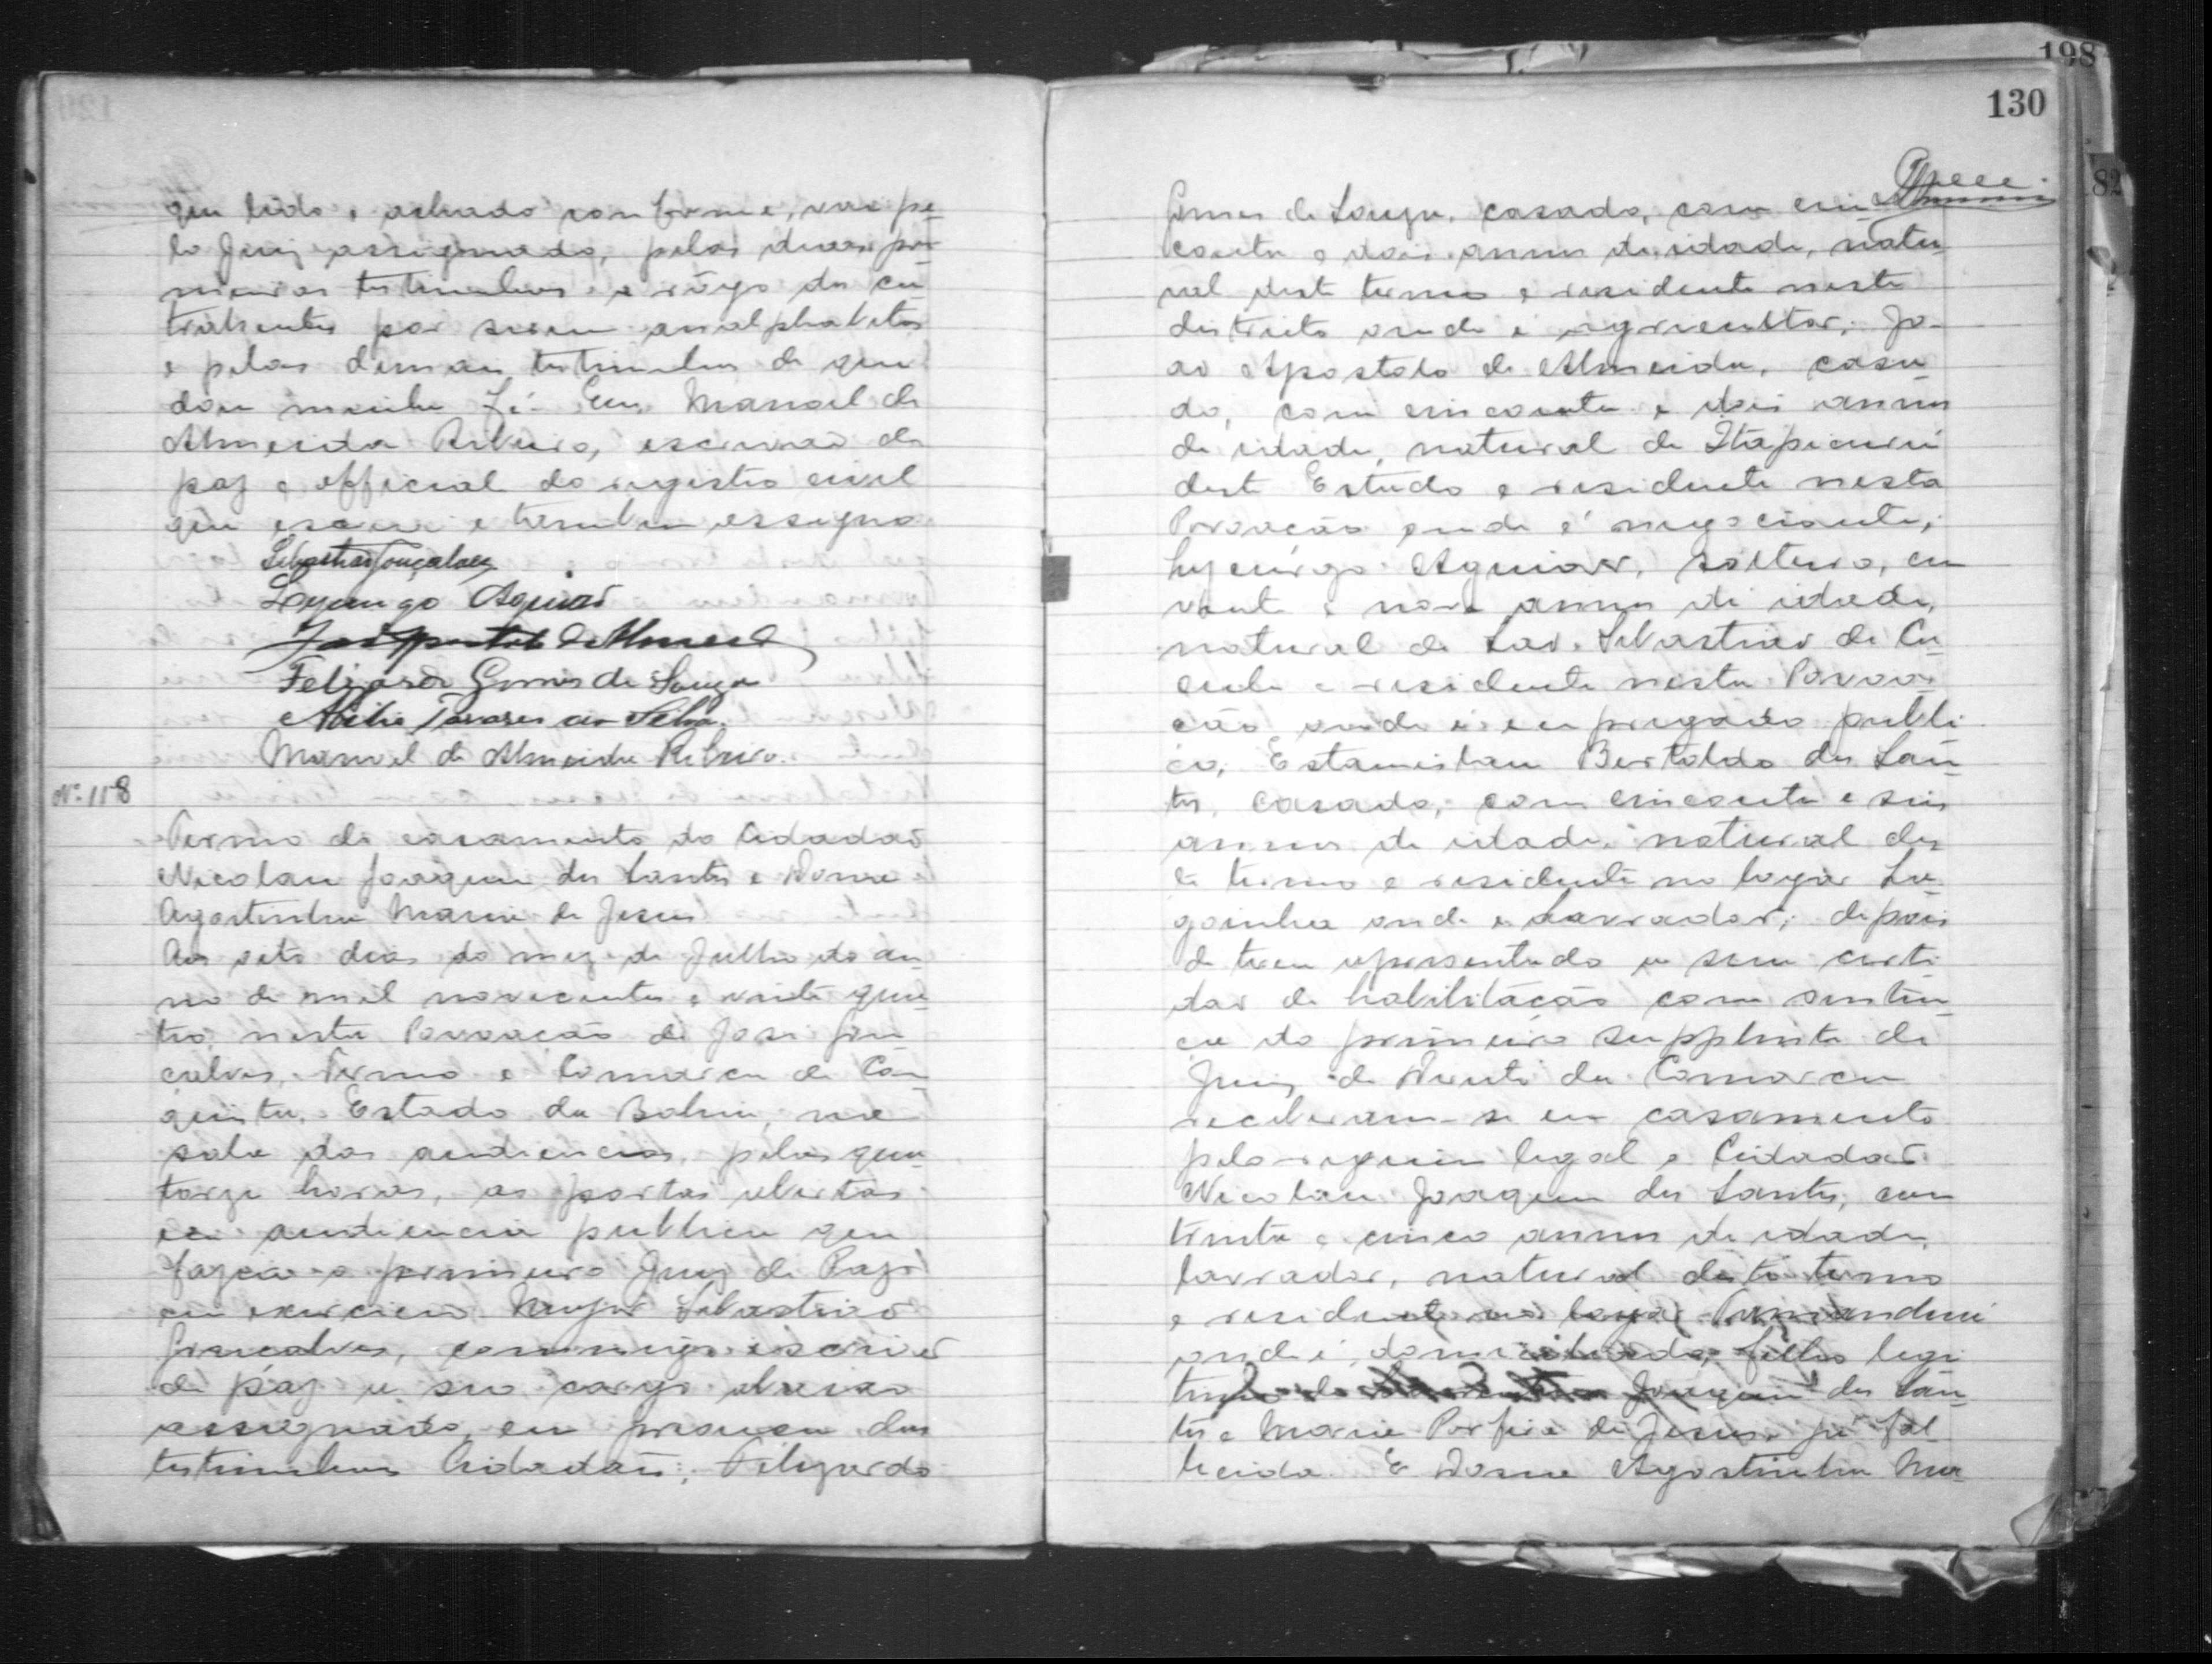 que lido e achado conforme, vae pe-
lo Juiz assignado, pelas duas pri-
meiras testimunhas a rôgo dos cu
trahentes por serem analphabetos
e pelas demais testimunhas do que
dou minha fé. Eu, Manoel de
Almeida Ribeiro, escrivão de
paz e official do registro civil
que escrevi e tambem assigno.
Sebastião Gonçalves
Lycurgo Aguiar
João Apostolo de Almeida
Felizardo Gomes de Souza
Tavares da Silva.
Manoel de Almeida Ribeiro.
Nº 118
Termo de casamento do Cidadão
Nicolau Joaquim dos Santos e Dona
Agostinha Maria de Jesus
Aos sete dias do mez de Julho do an-
no de mil novecentos e vinte qua-
tro, nesta Povoação de José Gon-
calves, Termo e Comarca de Con-
quista, Estado da Bahia, na
sala das audiencias, pelas qua-
torze horas, as portas abertas
em audiencia publica que
fazia o primeiro Juiz de Paz
em exercicio Major Sebastião
Gonçalves, commigo escrivão
de paz e seu cargo abaixo
assignado, em presença das
testimunhas Cidadãos; Felizardo
198
130
82
Gomes de Souza, casado, com cin-
coenta e dois annos de idade, natu-
ral deste termo e residente neste
districto onde é agricultor; Jo-
ão Apostolo de Almeida, casa-
do, com cincoenta e dois annos
de idade, natural de Itapicurú
deste Estado e residente nesta
Povoação onde é negociante;
Lycurgo Aguiar, solteiro, com
vinte e nove annos de idade,
natural de São Sebastião do Ca-
e residente nesta Povoa-
ção onde é empregado publi-
co, Estanislau Bertoldo dos San-
tos, casado, com cincoenta e seis
annos de idade, natural des-
te termo e residente no logar La-
goinha onde é lavrador; depois
de terem apresentado a sua certi-
dão de habilitação com senten-
ça do primeiro supplente de
Juiz de Direito da Comarca
receberam-se em casamento
pelo regimen legal o Cidadão
Nicolau Joaquim dos Santos, com
trinta e cinco annos de idade,
lavrador, natural deste termo
e residente no logar
onde é domiciliado, filho legi-
timo de Joaquim dos San-
tos e Maria Porfiria de Jesus, já fal-
lecida. E Dona Agostinha Ma-